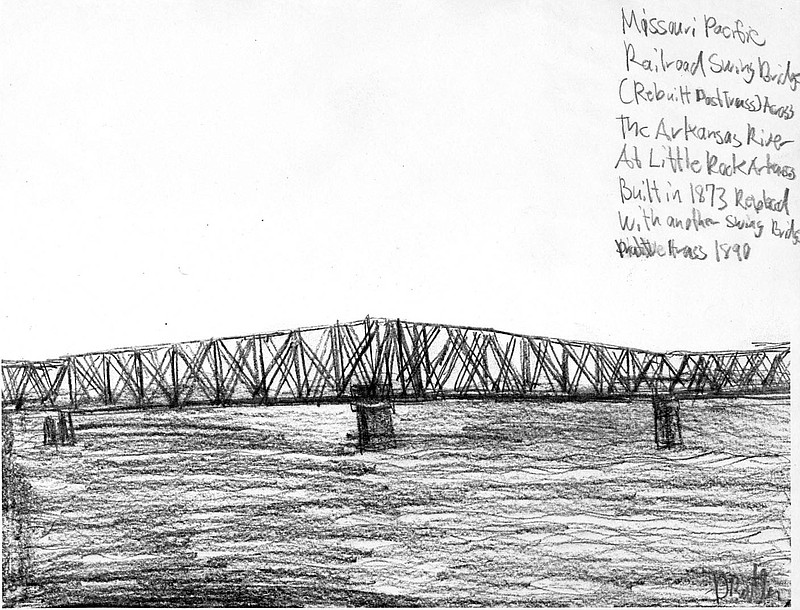 Missouri Pacific
Railroad Swing Bridge
(Rebuilt Post Truss) Across
The Arkansas River
At Little Rock Arkansas
Built in 1873 Replaced
with another Swing Bridge
truss 1890